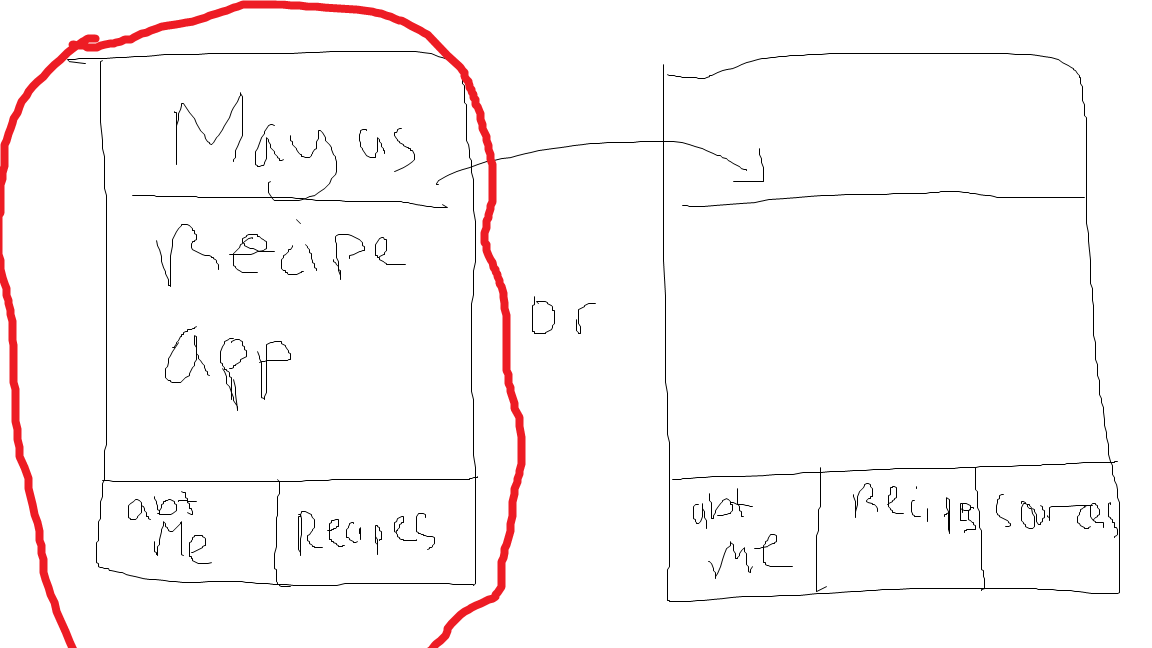 Mayas
Recipe
app
or
abt
Me
Recipes
abt
me
Recipes
Sources